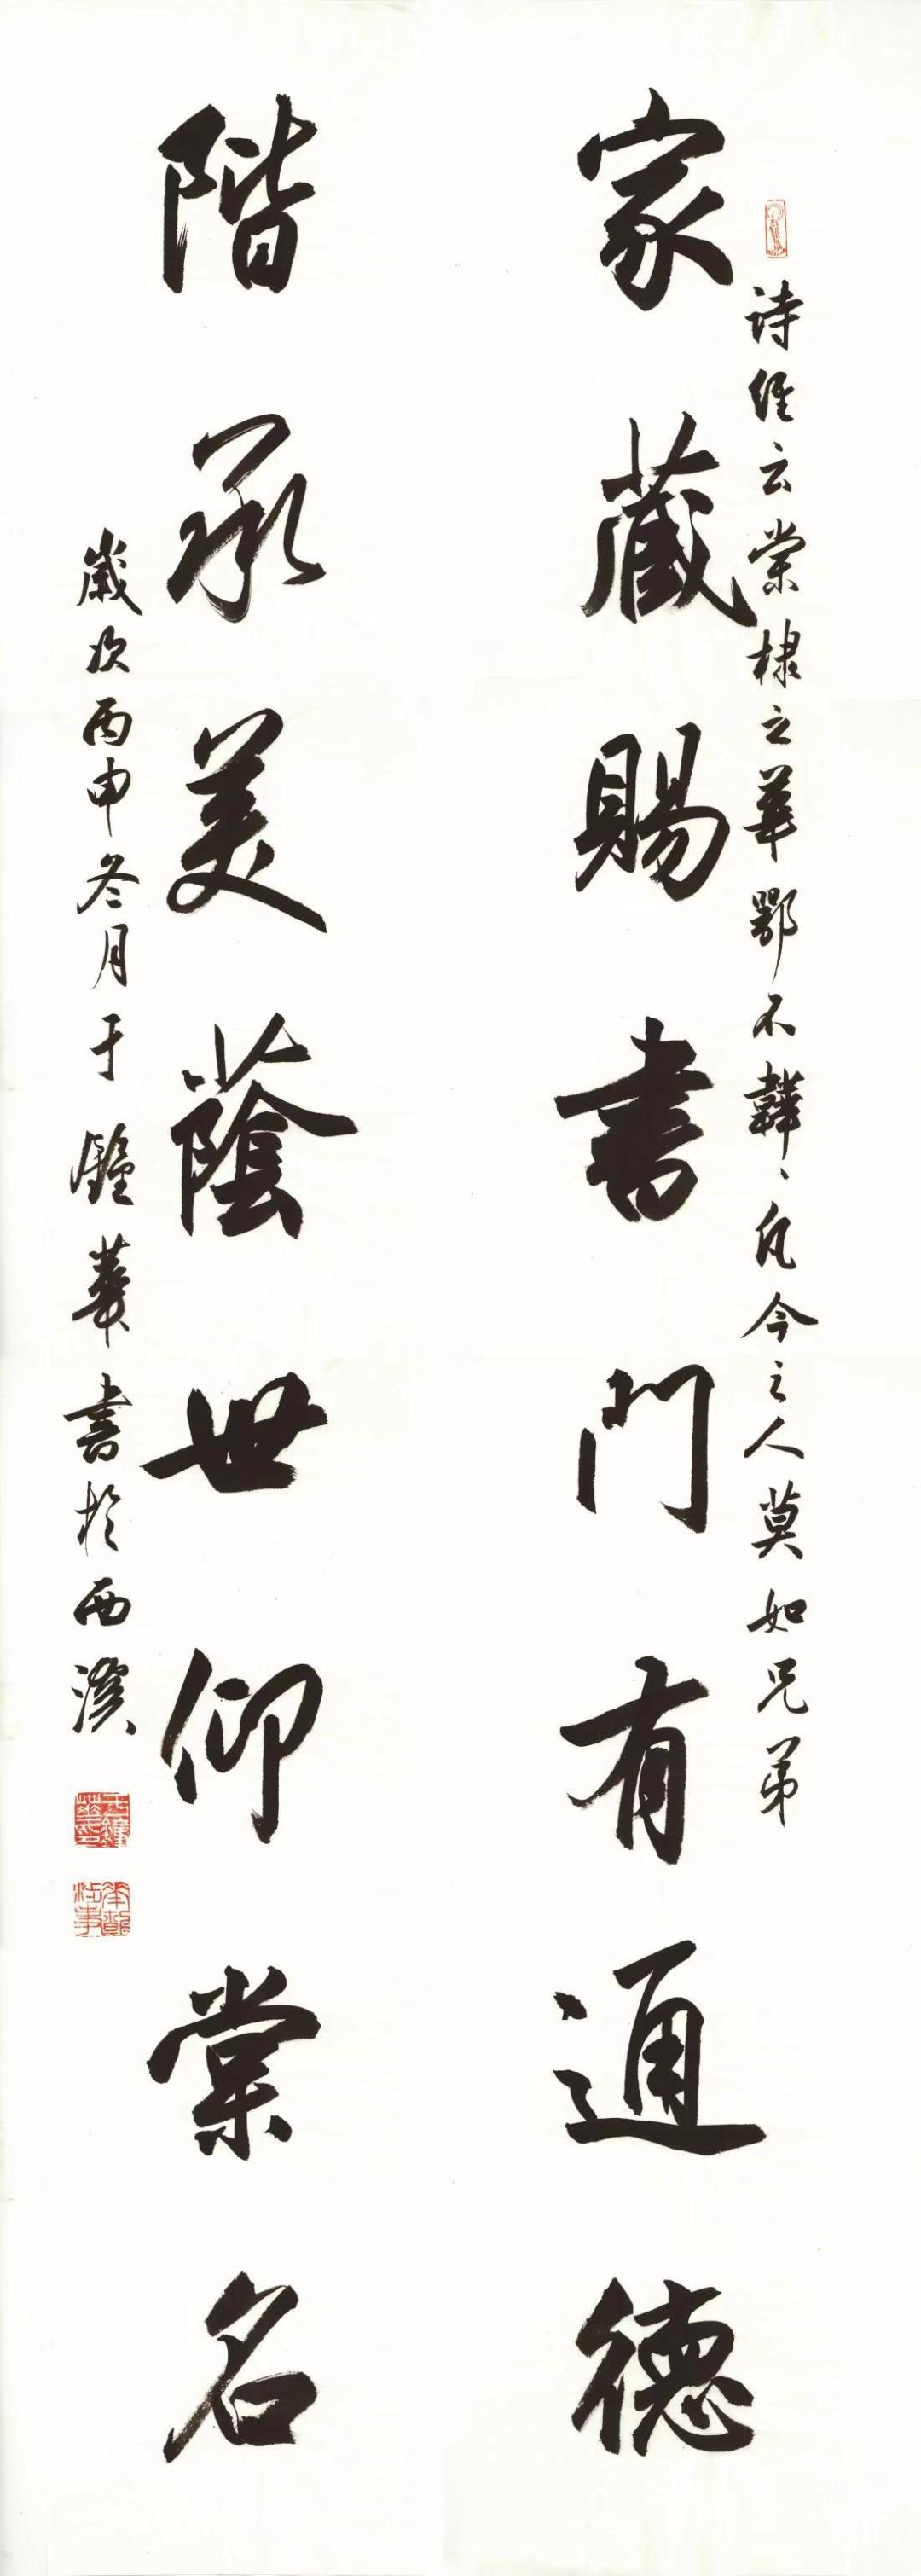 诗经云棠棣之华鄂不韡、凡今之人莫如兄弟
家藏賜書門有通德
階承美蔭世仰棠名
歲次丙申冬月于鐘華書於西溪